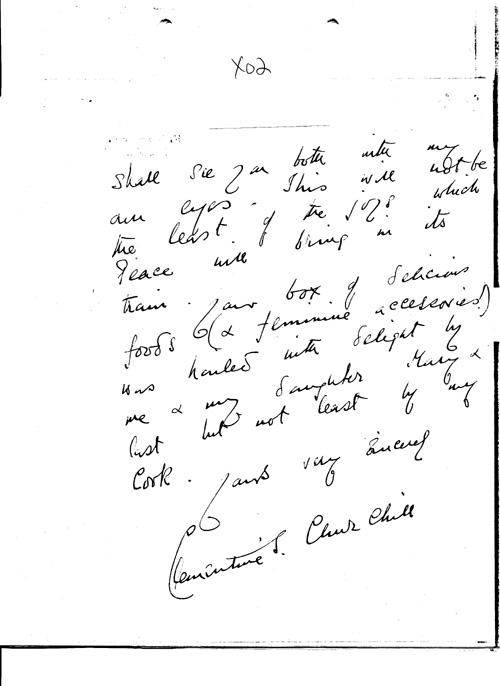 X02
shall see you both with my
own eyes. This will not be
the least of the joys which
Peace will bring in its
train. Your box of delicious
foods (& feminine accessories!)
was hailed with delight by
me & my daughter Mary &
last but not least by my
Cook. Yours very sincerely
Clementine S. Churchill